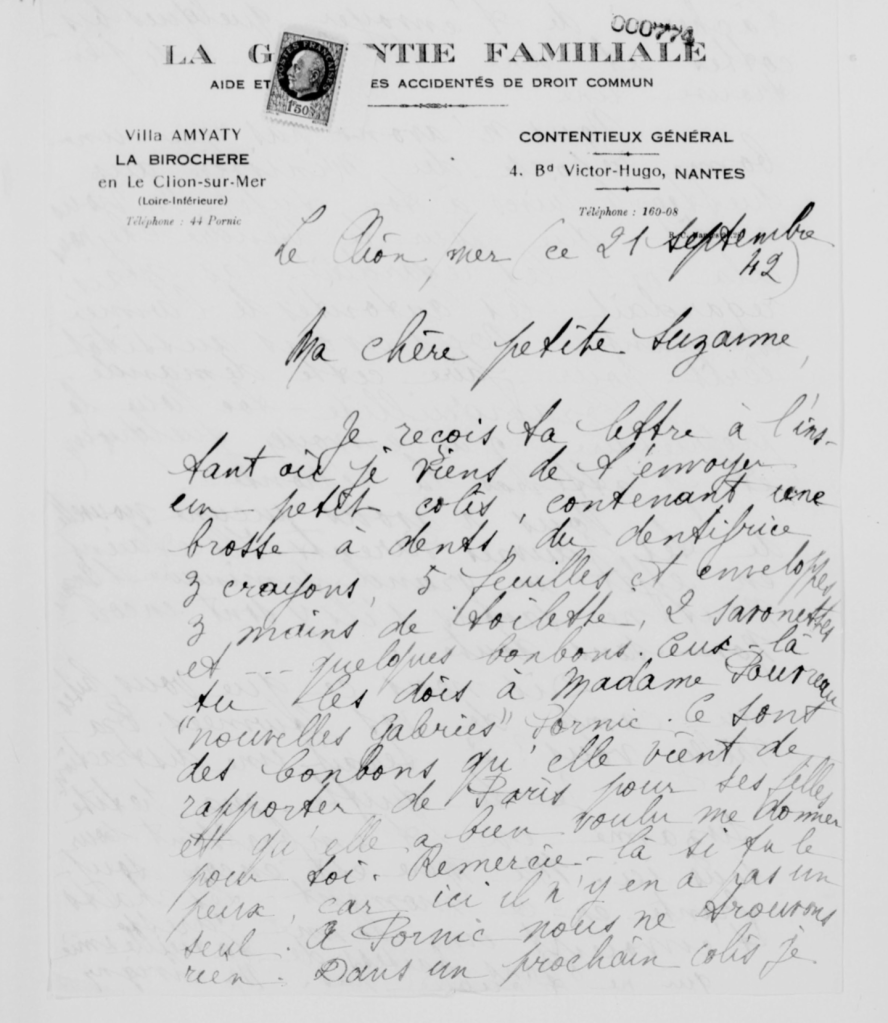 000774
LA G NTIE FAMILIALE
AIDE ET ES ACCIDENTÉS DE DROIT COMMUN
POSTES FRANÇAISES
1F50
Villa AMYATY
LA BIROCHERE
en Le Clion-sur-Mer
(Loire-Inférieure)
Téléphone : 44 Pornic
CONTENTIEUX GÉNÉRAL
4. Bd Victor-Hugo, NANTES
Téléphone : 160-08
Le Clion, mer (ce 21 septembre
42)
Ma chère petite Suzanne,
Je reçois ta lettre à l'ins-
tant où je viens de t'envoyer
un petit colis, contenant une
brosse à dents, du dentifrice
3 crayons, 5 feuilles et enveloppes
3 mains de toilette, 2 savonettes
et --- quelques bonbons. Ceux-là
tu les dois à Madame
"nouvelles Galeries" Pornic. Ce sont
des bonbons qu'elle vient de
rapporter de Paris pour ses filles
et qu'elle a bien voulu me donner
pour toi. Remercie-là si tu le
peux, car ici il n'y en a pas un
seul. A Pornic nous ne trouvons
rien. Dans un prochain colis je